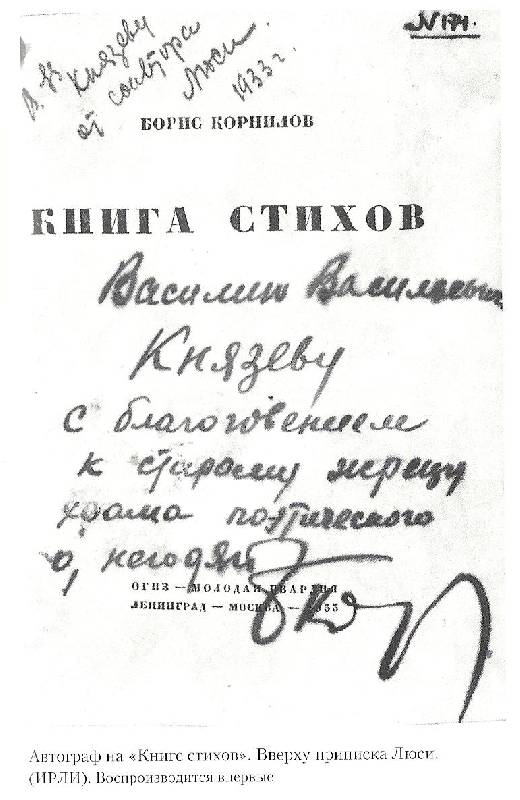 №174.
В. В. Князеву
от соавтора
Люси.
1933 г.
БОРИС КОРНИЛОВ
КНИГА СТИХОВ
Василию Васильевичу
Князеву
с благоговением
к старому жрецу
храма поэтического
о, негодяй
ОГИЗ — МОЛОДАЯ ГВАРДИЯ
ЛЕНИНГРАД — МОСКВА — 1933
Б Кор
Автограф на «Книге стихов». Вверху приписка Люси.
(ИРЛИ). Воспроизводится впервые